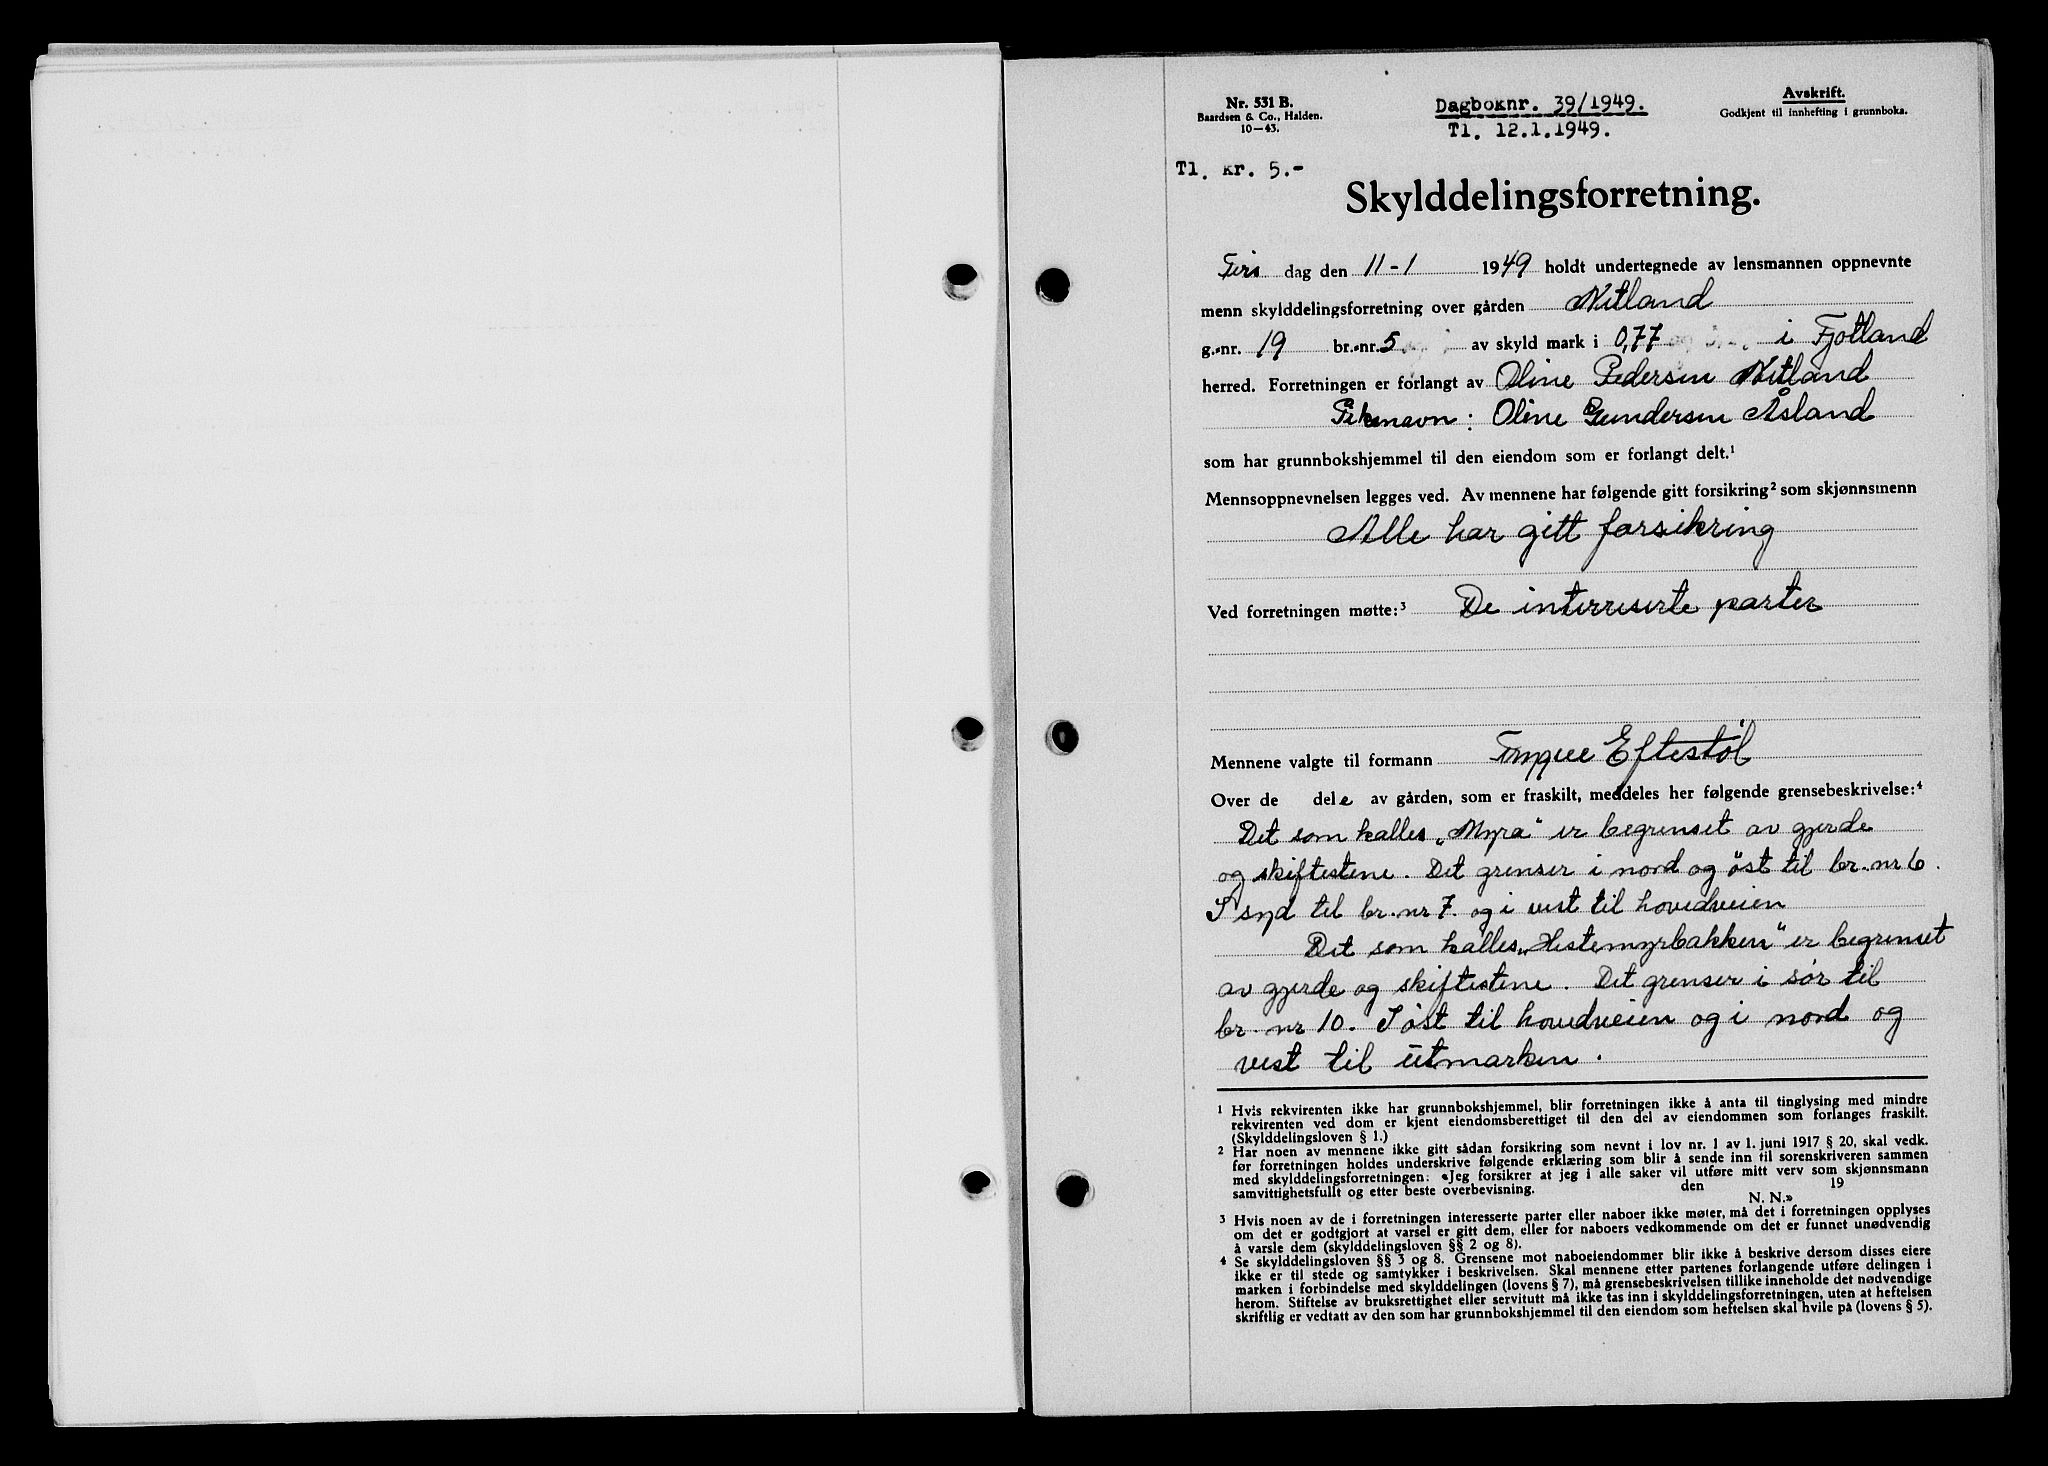 Nr. 531 B.
Baardsen & Co., Halden.
10—43.
Dagboknr. 39/1949.
Tl. 12.1.1949.
Avskrift.
Godkjent til innhefting i grunnboka.
Tl. kr. 5.-
Skylddelingsforretning.
Tirs dag den 11-1 1949 holdt undertegnede av lensmannen oppnevnte
menn skylddelingsforretning over gården Nitland
g.-nr. 19 br.-nr. 5 av skyld mark i 0,77 i Fjotland
herred. Forretningen er forlangt av Oline Pedersen Nitland
Pikenavn: Oline Gundersen Åsland
som har grunnbokshjemmel til den eiendom som er forlangt delt.¹
Mennsoppnevnelsen legges ved. Av mennene har følgende gitt forsikring² som skjønnsmenn
Alle har gitt forsikring
Ved forretningen møtte:³ De interreserte parter
Mennene valgte til formann Eftestöl
Over de dele av gården, som er fraskilt, meddeles her følgende grensebeskrivelse:⁴
Det som kalles „Myra" er begrenset av gjerde
og skiftestene. Det grenser i nord og öst til br. nr 6.
I syd til br. nr 7. og i vest til hovedveien
Det som kalles „Hestemyrbakken" er begrenset
av gjerde og skiftestene. Det grenser i sör til
br. nr 10. I öst til hovedveien og i nord og
vest til utmarken.
¹ Hvis rekvirenten ikke har grunnbokshjemmel, blir forretningen ikke å anta til tinglysing med mindre
rekvirenten ved dom er kjent eiendomsberettiget til den del av eiendommen som forlanges fraskilt.
(Skylddelingsloven § 1.)
² Har noen av mennene ikke gitt sådan forsikring som nevnt i lov nr. 1 av 1. juni 1917 § 20, skal vedk.
før forretningen holdes underskrive følgende erklæring som blir å sende inn til sorenskriveren sammen
med skylddelingsforretningen: «Jeg forsikrer at jeg i alle saker vil utføre mitt verv som skjønnsmann
samvittighetsfullt og etter beste overbevisning. den 19
N. N.»
³ Hvis noen av de i forretningen interesserte parter eller naboer ikke møter, må det i forretningen opplyses
om det er godtgjort at varsel er gitt dem, eller for naboers vedkommende om det er funnet unødvendig
å varsle dem (skylddelingsloven §§ 2 og 8).
⁴ Se skylddelingsloven §§ 3 og 8. Grensene mot naboeiendommer blir ikke å beskrive dersom disses eiere
ikke er til stede og samtykker i beskrivelsen. Skal mennene etter partenes forlangende utføre delingen i
marken i forbindelse med skylddelingen (lovens § 7), må grensebeskrivelsen tillike inneholde det nødvendige
herom. Stiftelse av bruksrettighet eller servitutt må ikke tas inn i skylddelingsforretningen, uten at heftelsen
skriftlig er vedtatt av den som har grunnbokshjemmel til den eiendom som heftelsen skal hvile på (lovens § 5).